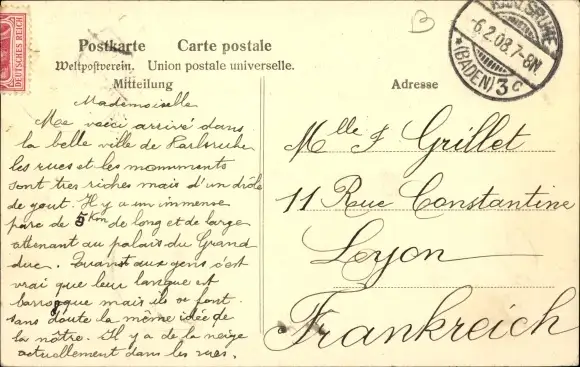 DEUTSCHES REICH
KARLSRUHE
-6.2.08.7-8N.
*(BADEN) 3c
Postkarte Carte postale
Weltpostverein. Union postale universelle.
Mitteilung
Adresse
Mademoiselle
Me voici arrivé dans
la belle ville de Karlsruhe
les rues et les monuments
sont tres riches mais d'un drôle
de gout. Il y a un immense
parc de 5 Km de long et de large
attenant au palais du Grand
duc. Quant aux gens c'est
vrai que leur langue est
barroque mais ils se font
sans doute la même idée de
la nôtre. Il y a de la neige
actuellement dans les rues.
Mlle J Grillet
11 Rue Constantine
Lyon
Frankreich